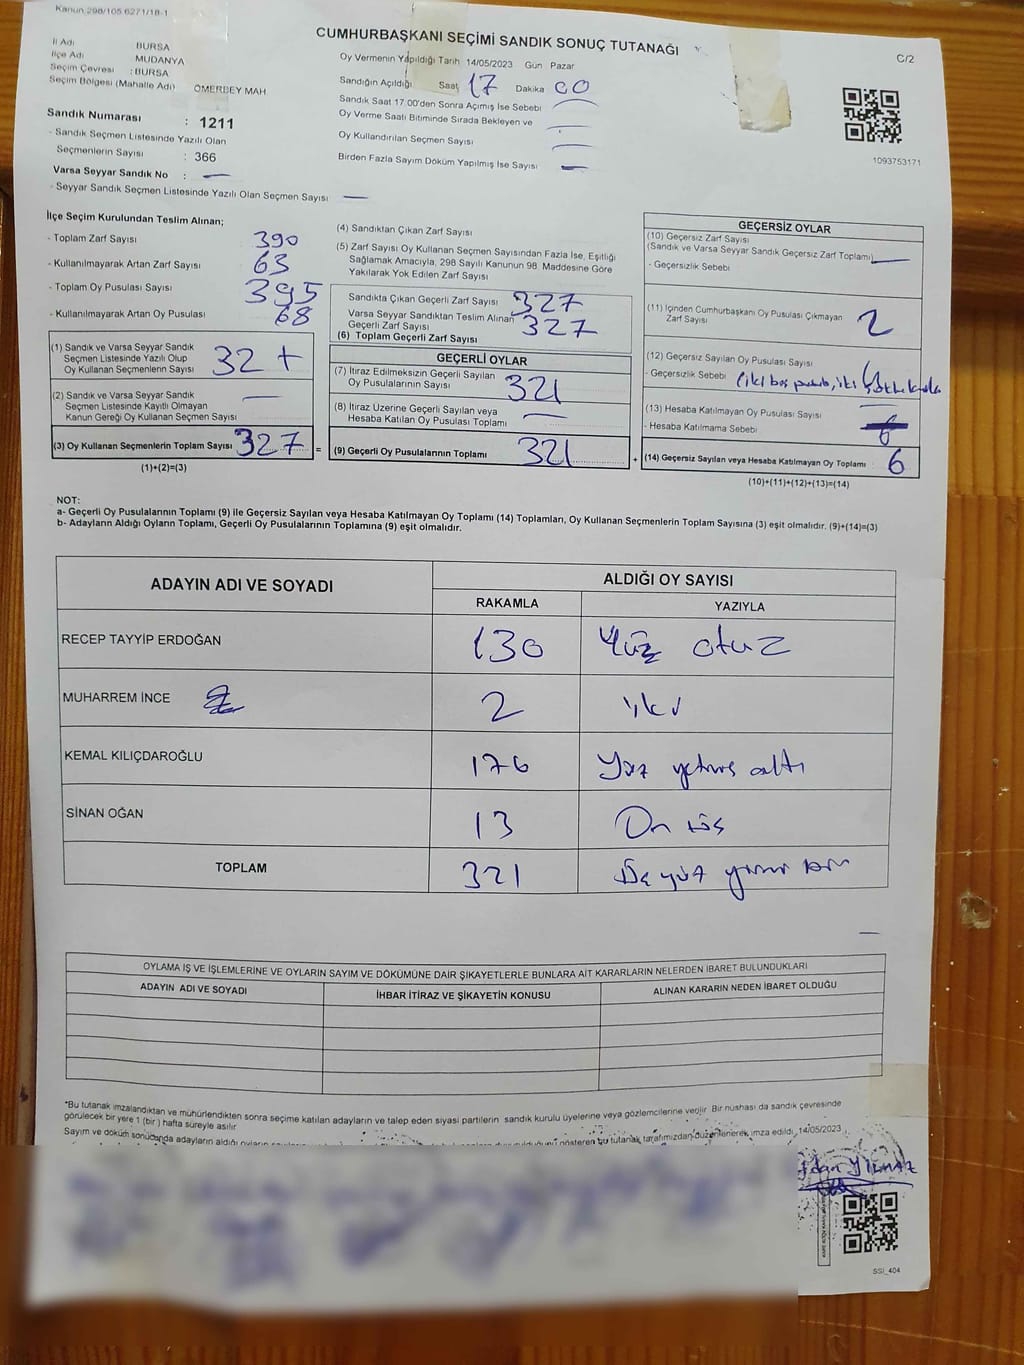 Kanun 298/105 6271/18-1
CUMHURBAŞKANI SEÇİMİ SANDIK SONUÇ TUTANAĞI
C/2
İl Adı BURSA
İlçe Adı MUDANYA
Seçim Çevresi : BURSA
Seçim Bölgesi (Mahalle Adı) ÖMERBEY MAH
Sandık Numarası : 1211
- Sandık Seçmen Listesinde Yazılı Olan
Seçmenlerin Sayısı : 366
Varsa Seyyar Sandık No : —
- Seyyar Sandık Seçmen Listesinde Yazılı Olan Seçmen Sayısı —
Oy Vermenin Yapıldığı Tarih 14/05/2023 Gün Pazar
Sandığın Açıldığı Saat 17 Dakika 00
Sandık Saat 17.00'den Sonra Açımış İse Sebebi —
Oy Verme Saati Bitiminde Sırada Bekleyen ve —
Oy Kullandırılan Seçmen Sayısı —
Birden Fazla Sayım Döküm Yapılmış İse Sayısı —
1093753171
İlçe Seçim Kurulundan Teslim Alınan;
- Toplam Zarf Sayısı 390
- Kullanılmayarak Artan Zarf Sayısı 63
- Toplam Oy Pusulası Sayısı 395
- Kullanılmayarak Artan Oy Pusulası 68
(1) Sandık ve Varsa Seyyar Sandık
Seçmen Listesinde Yazılı Olup
Oy Kullanan Seçmenlerin Sayısı 327
(2) Sandık ve Varsa Seyyar Sandık
Seçmen Listesinde Kayıtlı Olmayan
Kanun Gereği Oy Kullanan Seçmen Sayısı —
(3) Oy Kullanan Seçmenlerin Toplam Sayısı 327 =
(1)+(2)=(3)
(4) Sandıktan Çıkan Zarf Sayısı
(5) Zarf Sayısı Oy Kullanan Seçmen Sayısından Fazla İse, Eşitliği
Sağlamak Amacıyla, 298 Sayılı Kanunun 98. Maddesine Göre
Yakılarak Yok Edilen Zarf Sayısı
Sandıkta Çıkan Geçerli Zarf Sayısı 327
Varsa Seyyar Sandıktan Teslim Alınan
Geçerli Zarf Sayısı 327
(6) Toplam Geçerli Zarf Sayısı
GEÇERLİ OYLAR
(7) İtiraz Edilmeksizin Geçerli Sayılan
Oy Pusulalarının Sayısı 321
(8) İtiraz Üzerine Geçerli Sayılan veya
Hesaba Katılan Oy Pusulası Toplamı —
(9) Geçerli Oy Pusulalarının Toplamı 321 +
GEÇERSİZ OYLAR
(10) Geçersiz Zarf Sayısı
(Sandık ve Varsa Seyyar Sandık Geçersiz Zarf Toplamı) —
- Geçersizlik Sebebi
(11) İçinden Cumhurbaşkanı Oy Pusulası Çıkmayan
Zarf Sayısı 2
(12) Geçersiz Sayılan Oy Pusulası Sayısı
- Geçersizlik Sebebi
(13) Hesaba Katılmayan Oy Pusulası Sayısı —
- Hesaba Katılmama Sebebi
(14) Geçersiz Sayılan veya Hesaba Katılmayan Oy Toplamı : 6
(10)+(11)+(12)+(13)=(14)
NOT:
a- Geçerli Oy Pusulalarının Toplamı (9) ile Geçersiz Sayılan veya Hesaba Katılmayan Oy Toplamı (14) Toplamları, Oy Kullanan Seçmenlerin Toplam Sayısına (3) eşit olmalıdır. (9)+(14)=(3)
b- Adayların Aldığı Oyların Toplamı, Geçerli Oy Pusulalarının Toplamına (9) eşit olmalıdır.
ADAYIN ADI VE SOYADI ALDIĞI OY SAYISI
RAKAMLA YAZIYLA
RECEP TAYYİP ERDOĞAN 130 Yüz otuz
MUHARREM İNCE 2 iki
KEMAL KILIÇDAROĞLU 176 Yüz yetmiş altı
SİNAN OĞAN 13 On üç
TOPLAM 321 Üç yüz yirmi bir
OYLAMA İŞ VE İŞLEMLERİNE VE OYLARIN SAYIM VE DÖKÜMÜNE DAİR ŞİKAYETLERLE BUNLARA AİT KARARLARIN NELERDEN İBARET BULUNDUKLARI
ADAYIN ADI VE SOYADI İHBAR İTİRAZ VE ŞİKAYETİN KONUSU ALINAN KARARIN NEDEN İBARET OLDUĞU
*Bu tutanak imzalandıktan ve mühürlendikten sonra seçime katılan adayların ve talep eden siyasi partilerin sandık kurulu üyelerine veya gözlemcilerine verilir. Bir nushası da sandık çevresinde
görülecek bir yere 1 (bir) hafta süreyle asılır.
Sayım ve döküm sonucunda adayların aldığı gösteren bu tutanak tarafımızdan düzenlenerek imza edildi. 14/05/2023
YILMAZ
SSİ_404